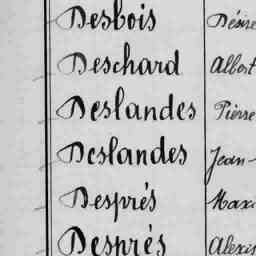 Desbois Désiré
Deschard Albert
Deslandes Pierre
Deslandes Jean-
Després Maxi
Després Alexis